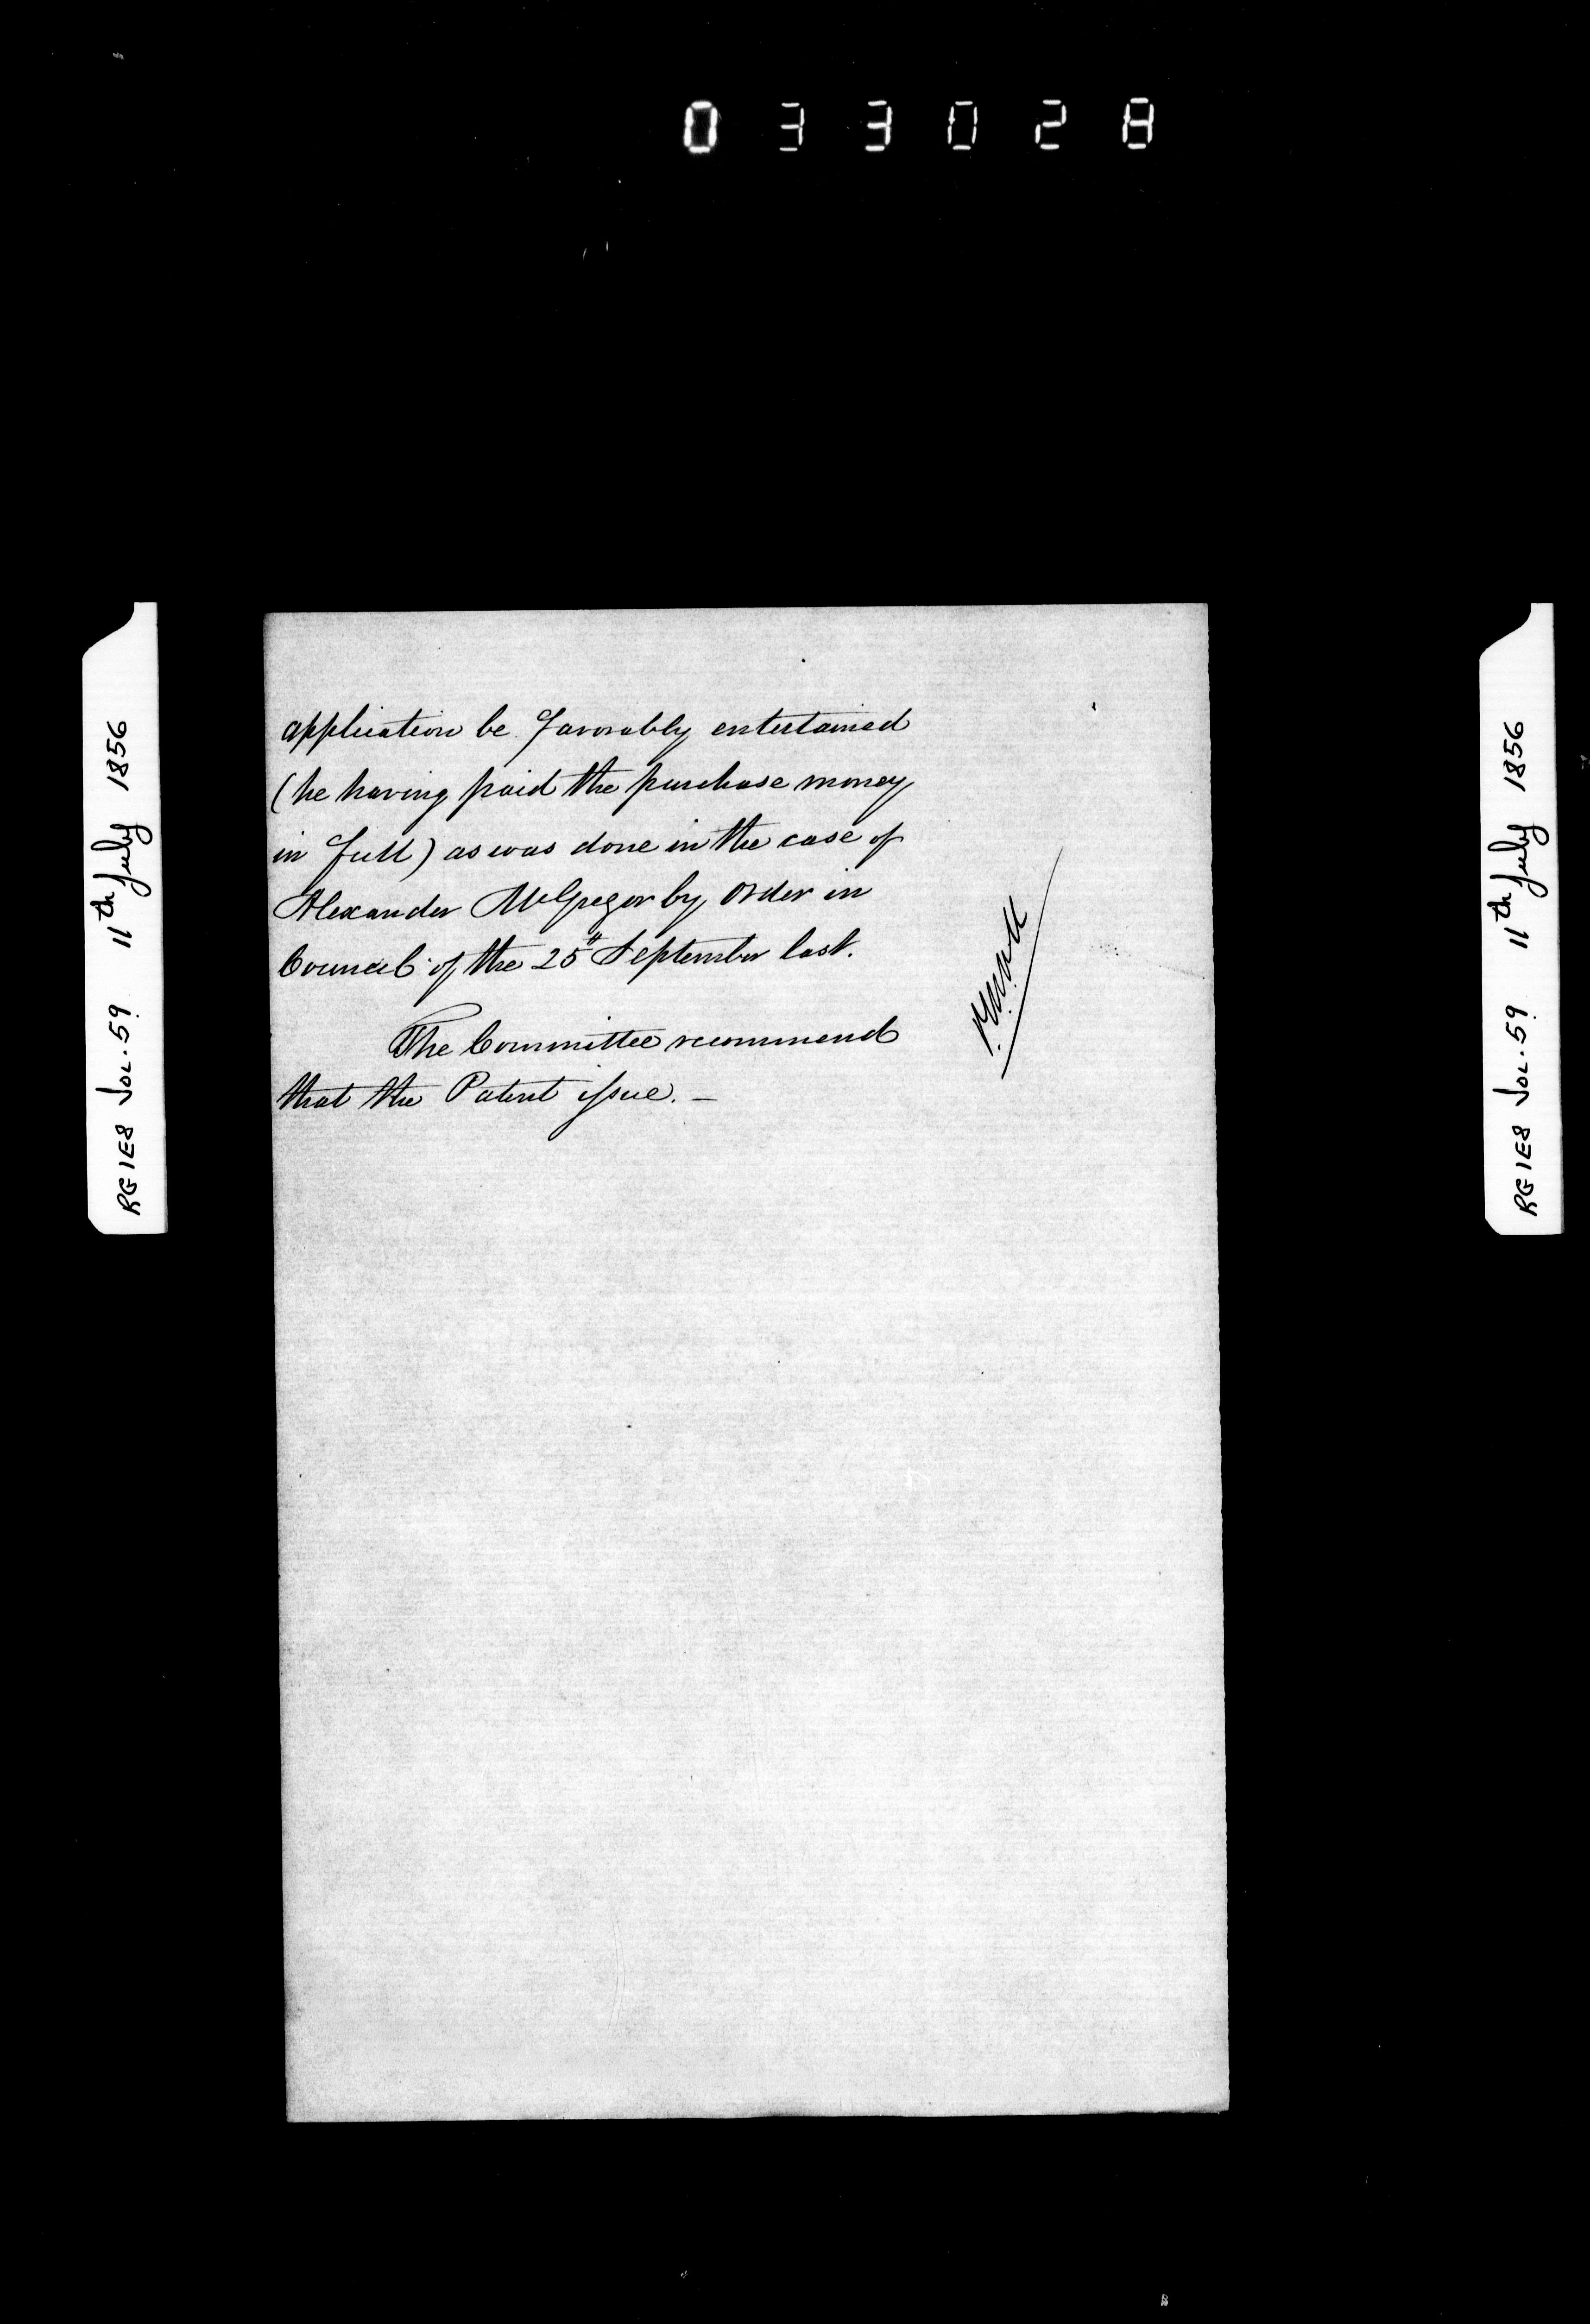 033028
RG1E8 VOL.59 11th July 1856
application be favorably entertained
(he having paid the purchase money
in full) as was done in the case of
Alexander McGregor by order in
Council of the 25th September last.
The Committee recommend
that the Patent issue. —
RG1E8 VOL.59 11th July 1856